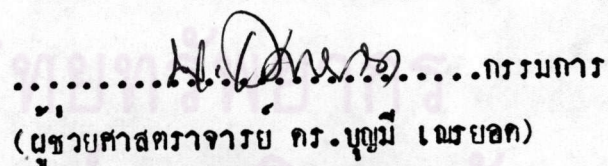 ..............................กรรมการ
(ผู้ช่วยศาสตราจารย์ ดร.บุญมี เณรยอด)